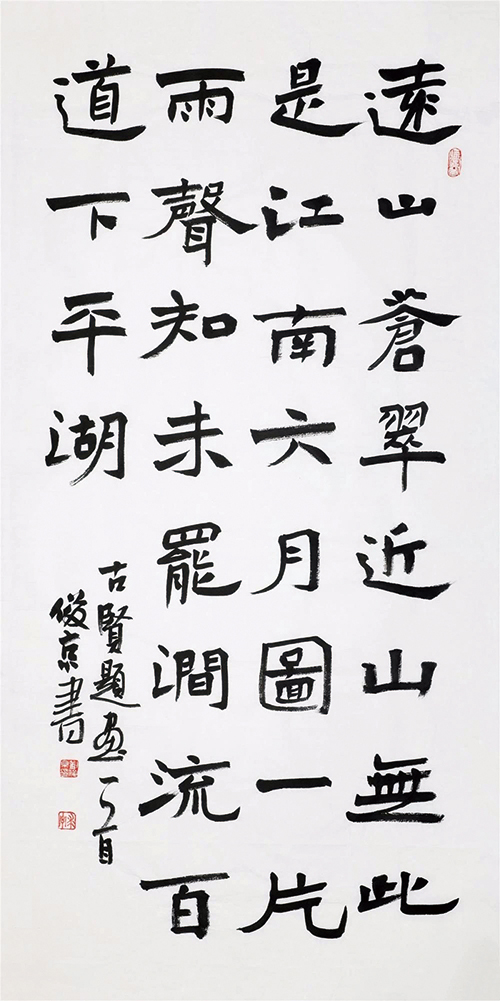 遠山蒼翠近山無此
是江南六月圖一片
雨聲知未罷澗流百
道下平湖
古賢題畫一首
俊京書